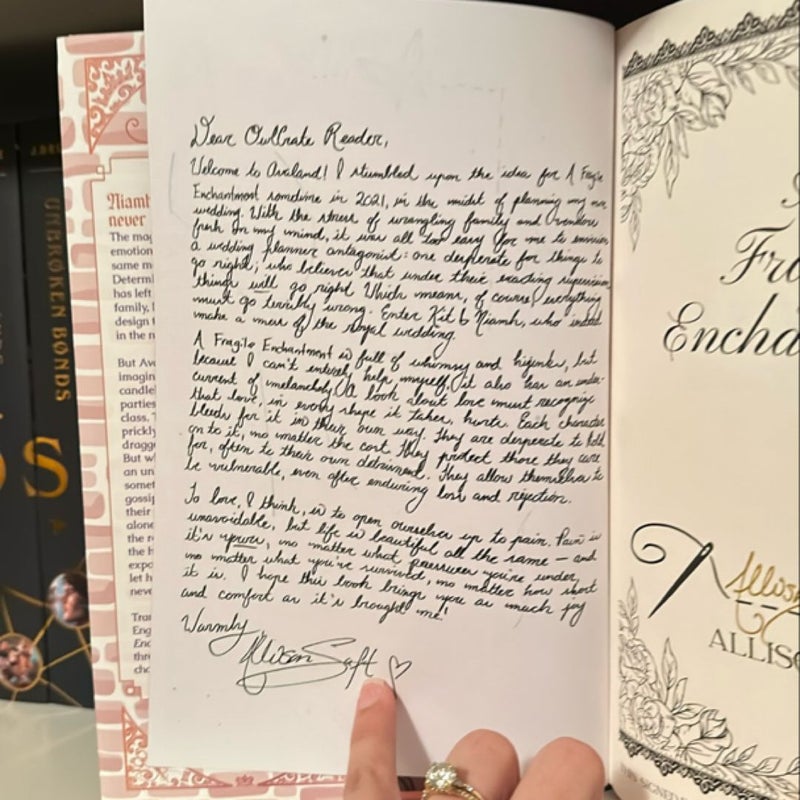 UNBROKEN BONDS
Niamh
never
The mag
emotion
same m
Determi
has left
family, l
design t
in the n
But Av
imagin
candle
parties
class. T
prickly
dragge
But w
an un
somet
gossip
their
alone
the r
the h
expo
let h
neve
Tran
Eng
Enc
thr
cha
Dear OwlCrate Reader,
Welcome to Avaland! I stumbled upon the idea for A Fragile
Enchantment sometime in 2021, in the midst of planning my own
wedding. With the stress of wrangling family and vendors
fresh on my mind, it was all too easy for me to envision
a wedding planner antagonist: one desperate for things to
go right; who believes that under their exacting supervision,
things will go right. Which means, of course, everything
must go terribly wrong. Enter Kit & Niamh, who indeed
make a mess of the royal wedding.
A Fragile Enchantment is full of whimsy and hijinks, but
because I can't entirely help myself, it also has an under-
current of melancholy. A book about love must recognize
that love, in every shape it takes, hurts. Each character
bleeds for it in their own way. They are desperate to hold
on to it, no matter the cost. They protect those they care
for, often to their own detriment. They allow themselves to
be vulnerable, even after enduring loss and rejection.
To love, I think, is to open ourselves up to pain. Pain is
unavoidable, but life is beautiful all the same — and
it's yours, no matter what pressures you're under,
no matter what you've survived, no matter how short
it is. I hope this book brings you as much joy
and comfort as it's brought me!
Warmly,
Allison Saft ♡
Fra
Encha
Allison
ALLISO
THIS SIGNED